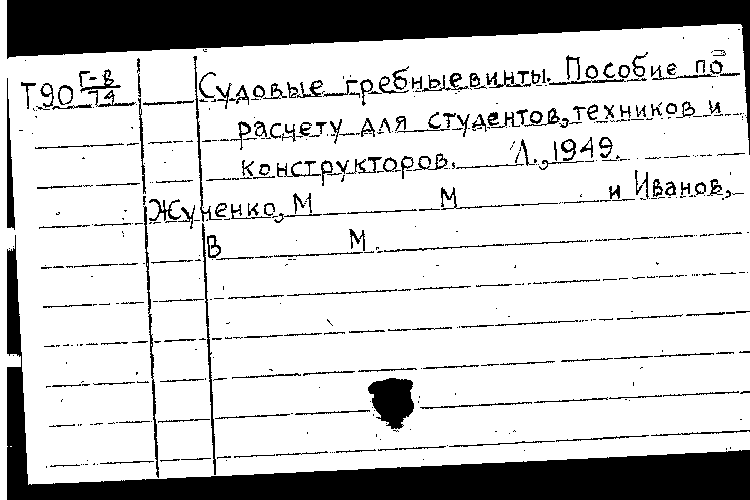 Т90 Г-В/74 Судовые гребные винты. Пособие по
расчету для студентов, техников и
конструкторов. Л., 1949.
Жученко, М М и Иванов,
В М.